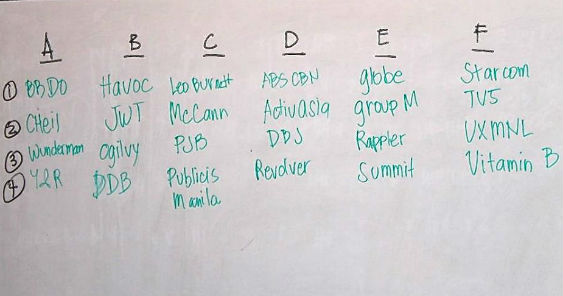 A B C D E F
① BBDO Havoc Leo Burnett ABS CBN globe Starcom
② CHeil JWT McCann Activasia group M TV5
③ Wunderman Ogilvy PJB DDJ Rappler UXMNL
④ Y&R DDB Publicis Manila Revolver Summit Vitamin B